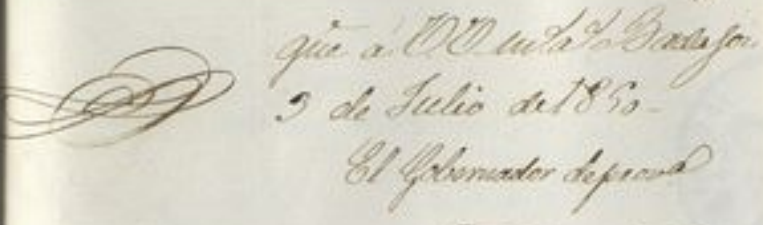 que á Badajoz
3 de Julio de 1850
El Gobernador de prova